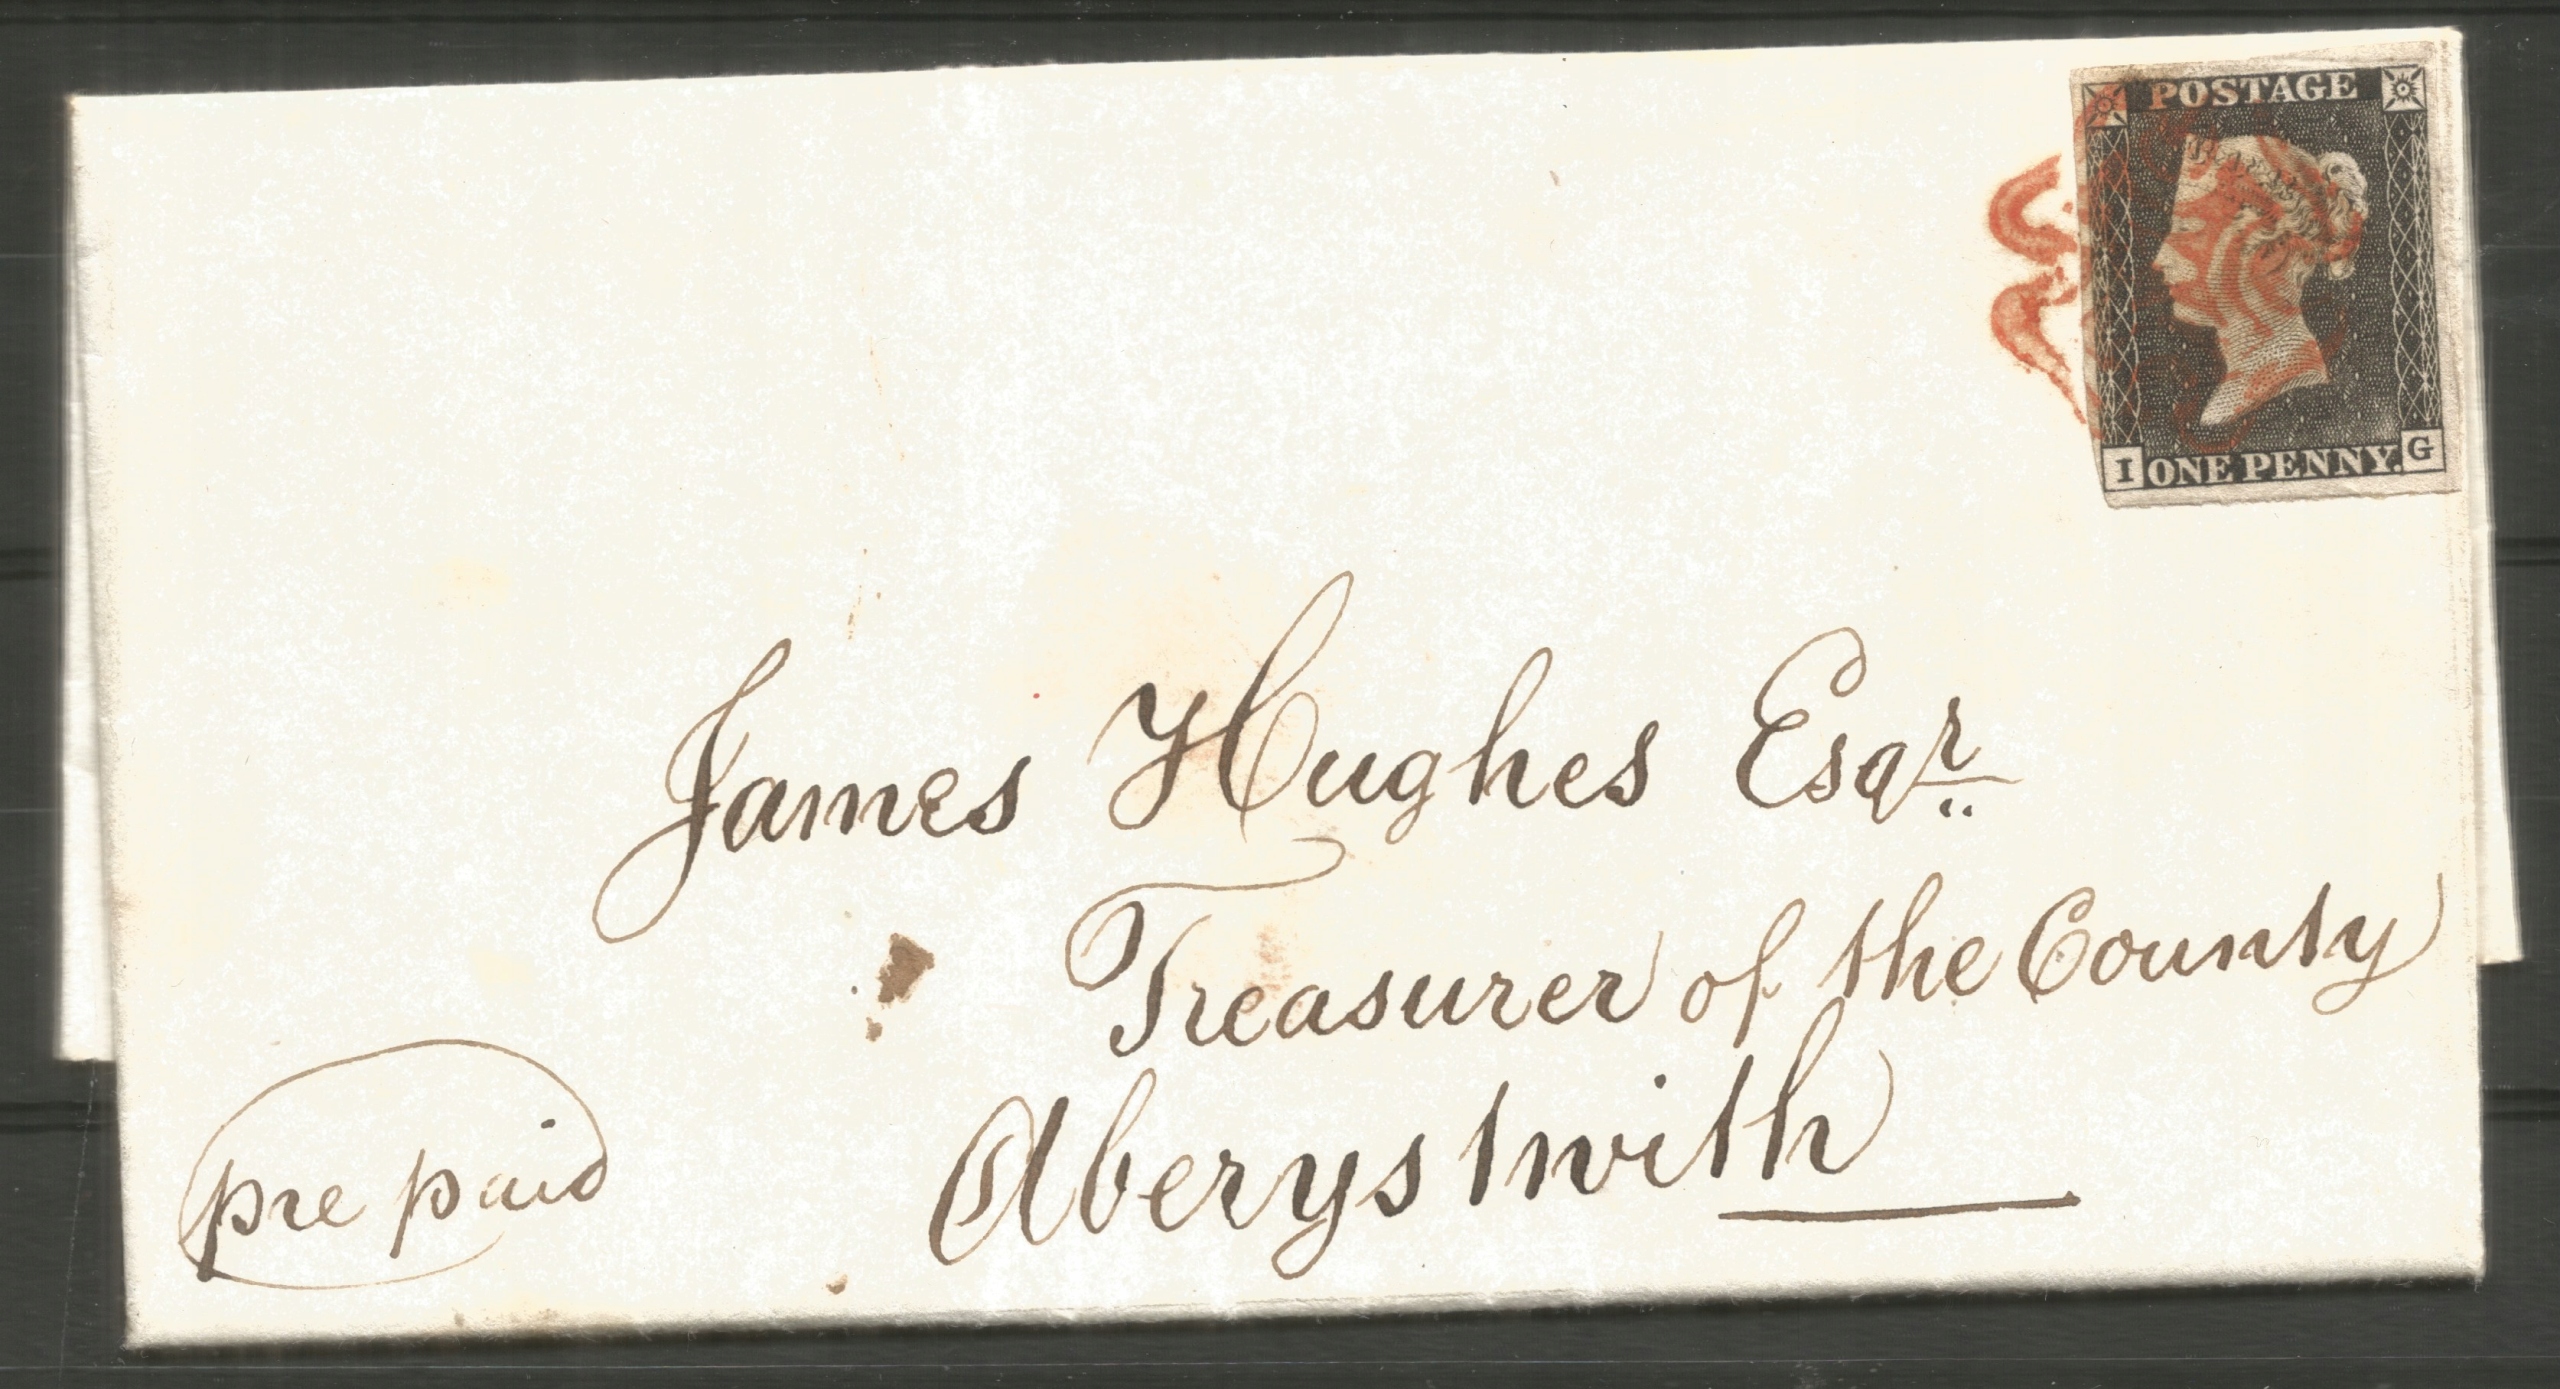 POSTAGE
I ONE PENNY. G
James Hughes Esqr
Treasurer of the County
Aberystwith
pre paid